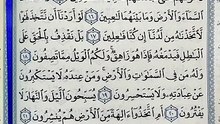 ٱلسَّمَآءَ وَٱلْأَرْضَ وَمَا بَيْنَهُمَا لَٰعِبِينَ ١٦ لَوْ أَرَدْنَآ أَن
لَّٱتَّخَذْنَٰهُ مِن لَّدُنَّآ إِن كُنَّا فَٰعِلِينَ ١٧ بَلْ نَقْذِفُ بِٱلْحَقِّ عَلَى
ٱلْبَٰطِلِ فَيَدْمَغُهُۥ فَإِذَا هُوَ زَاهِقٌ وَلَكُمُ ٱلْوَيْلُ مِمَّا تَصِفُونَ ١٨
وَلَهُۥ مَن فِى ٱلسَّمَٰوَٰتِ وَٱلْأَرْضِ وَمَنْ عِندَهُۥ لَا يَسْتَكْبِرُونَ
عَنْ عِبَادَتِهِۦ وَلَا يَسْتَحْسِرُونَ ١٩ يُسَبِّحُونَ ٱلَّيْلَ وَٱلنَّهَارَ لَا
يَفْتُرُونَ ٢٠ أَمِ ٱتَّخَذُوٓا۟ ءَالِهَةً مِّنَ ٱلْأَرْضِ هُمْ